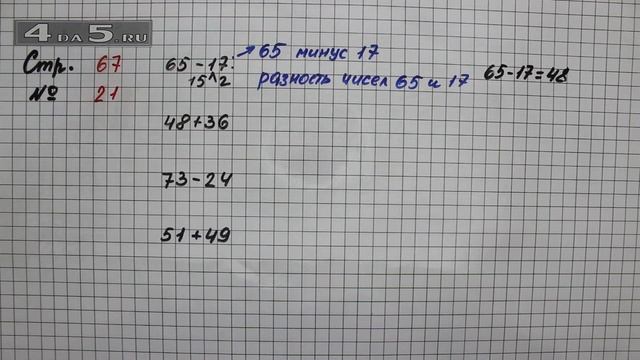 4 DA 5.RU
Стр. 67
№ 21
65 - 17:
15^2
→ 65 минус 17
разность чисел 65 и 17
65-17=48
48+36
73-24
51+49